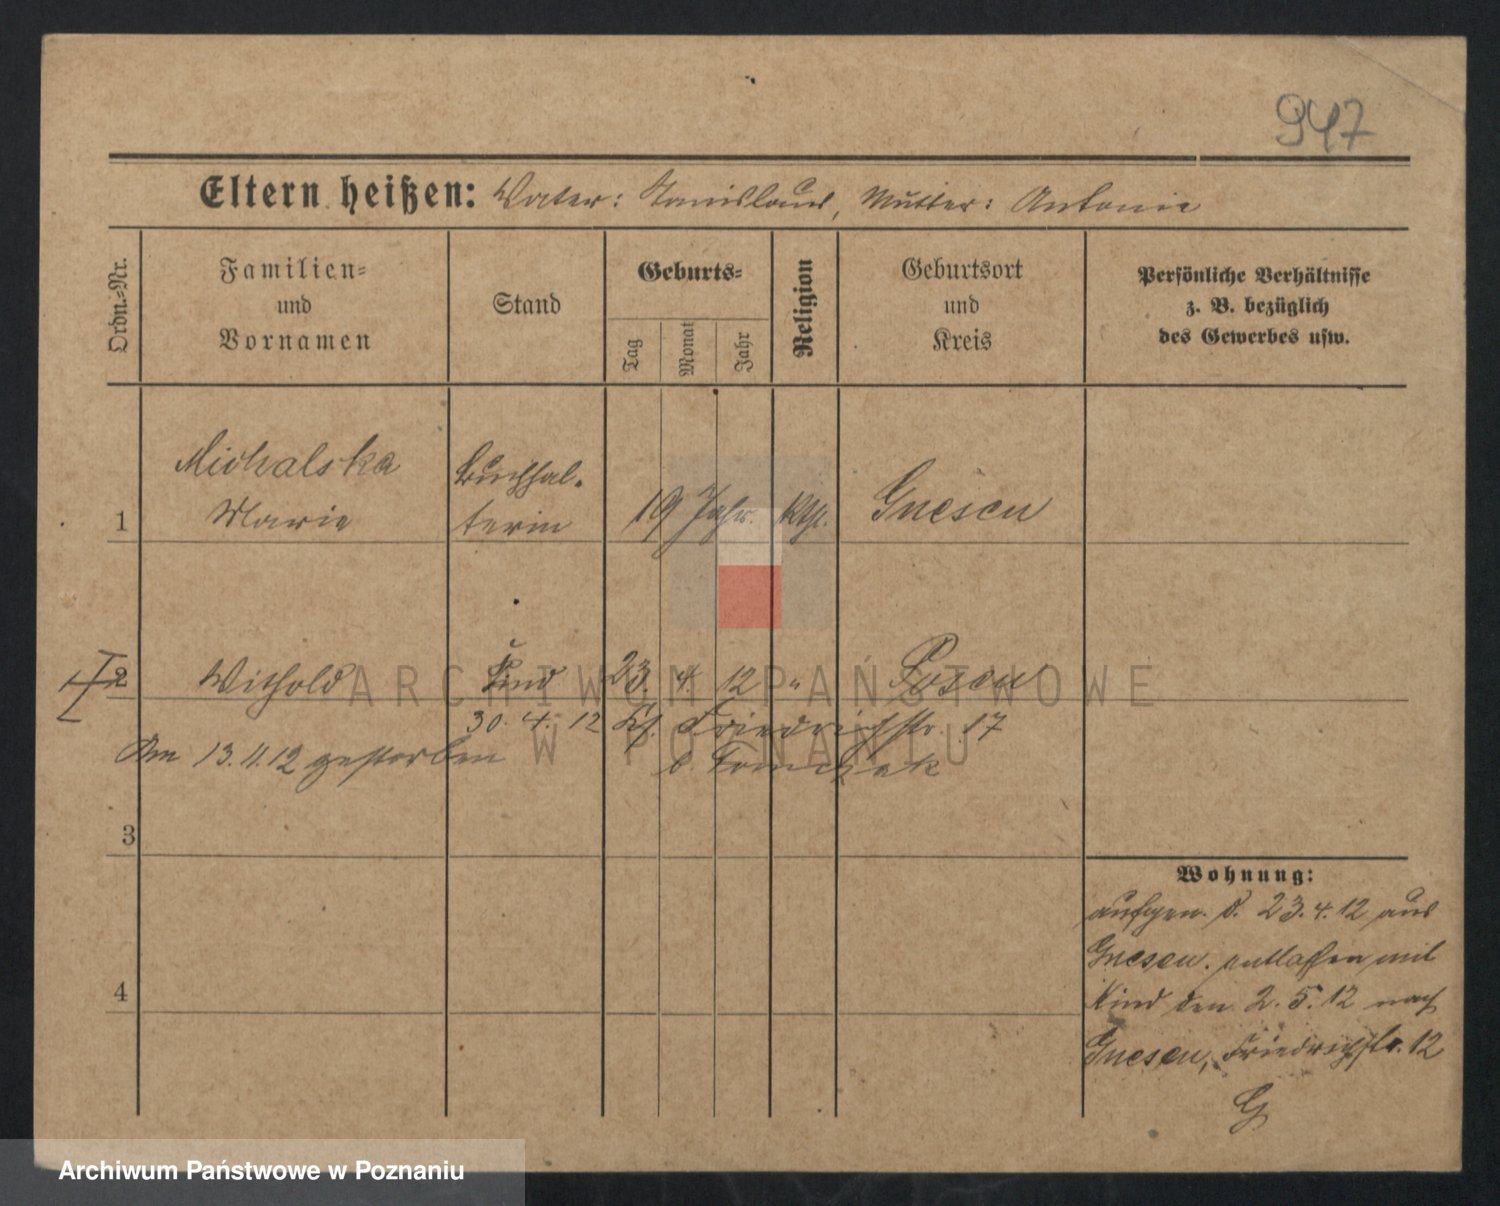 947
Eltern heißen: Vater: Stanislaus, Mutter: Antonie
Ordn.=Nr.
Familien=
und
Vornamen
Stand
Geburts=
Tag
Monat
Jahr
Religion
Geburtsort
und
Kreis
Persönliche Verhältnisse
z. B. bezüglich
des Gewerbes usw.
Michalska Buchhal-
1 Marie terin 19 Jahr. kth. Gnesen
2 Withold Kind 23. 4. 12 " Posen
30. 4. 12 Kl. Friedrichstr. 17
Am 13.11.12 gestorben b. Tomczak
3
Wohnung:
aufgen. d. 23.4.12 aus
Gnesen. entlassen mit
4
Kind den 2. 5. 12 nach
Gnesen, Friedrichstr. 12
G
ARCHIWUM PAŃSTWOWE
W POZNANIU
Archiwum Państwowe w Poznaniu